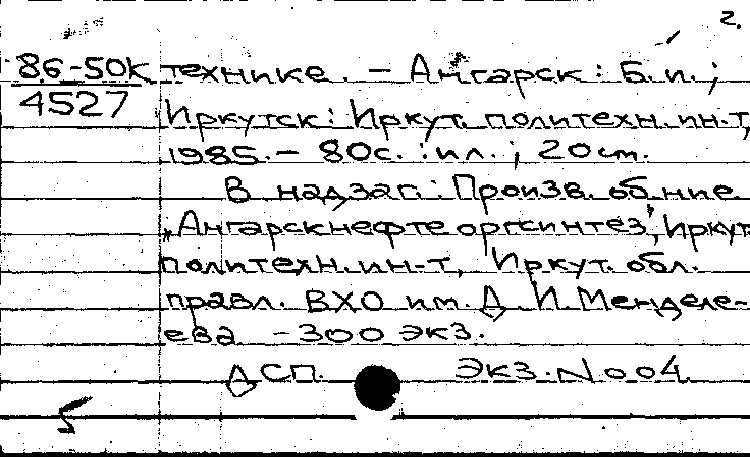 2.
86-50К технике. – Ангарск: Б.и.;
4527
Иркутск: Иркут. политехн. ин-т,
1985. – 80с. : ил. ; 20 см.
В надзаг.: Произв. об-ние
„Ангарскнефтеоргсинтез", Иркут.
политехн. ин-т, Иркут. обл.
правл. ВХО им. Д. И. Менделе-
ева. – 300 экз.
ДСП. Экз. N 004.